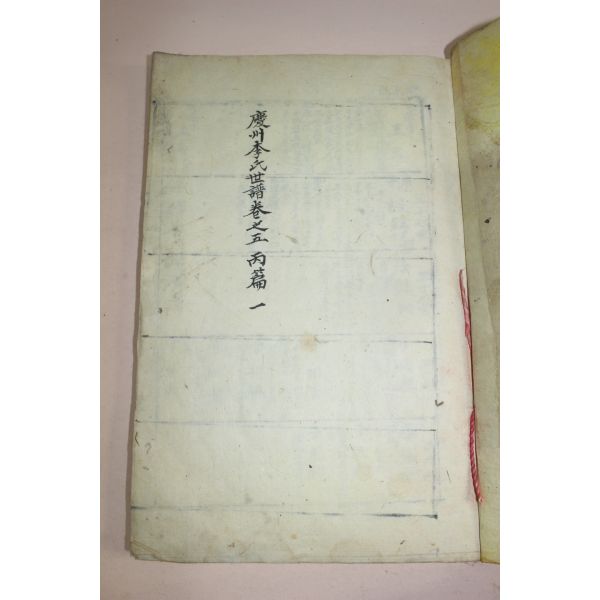 慶州李氏世譜卷之五 丙篇 一